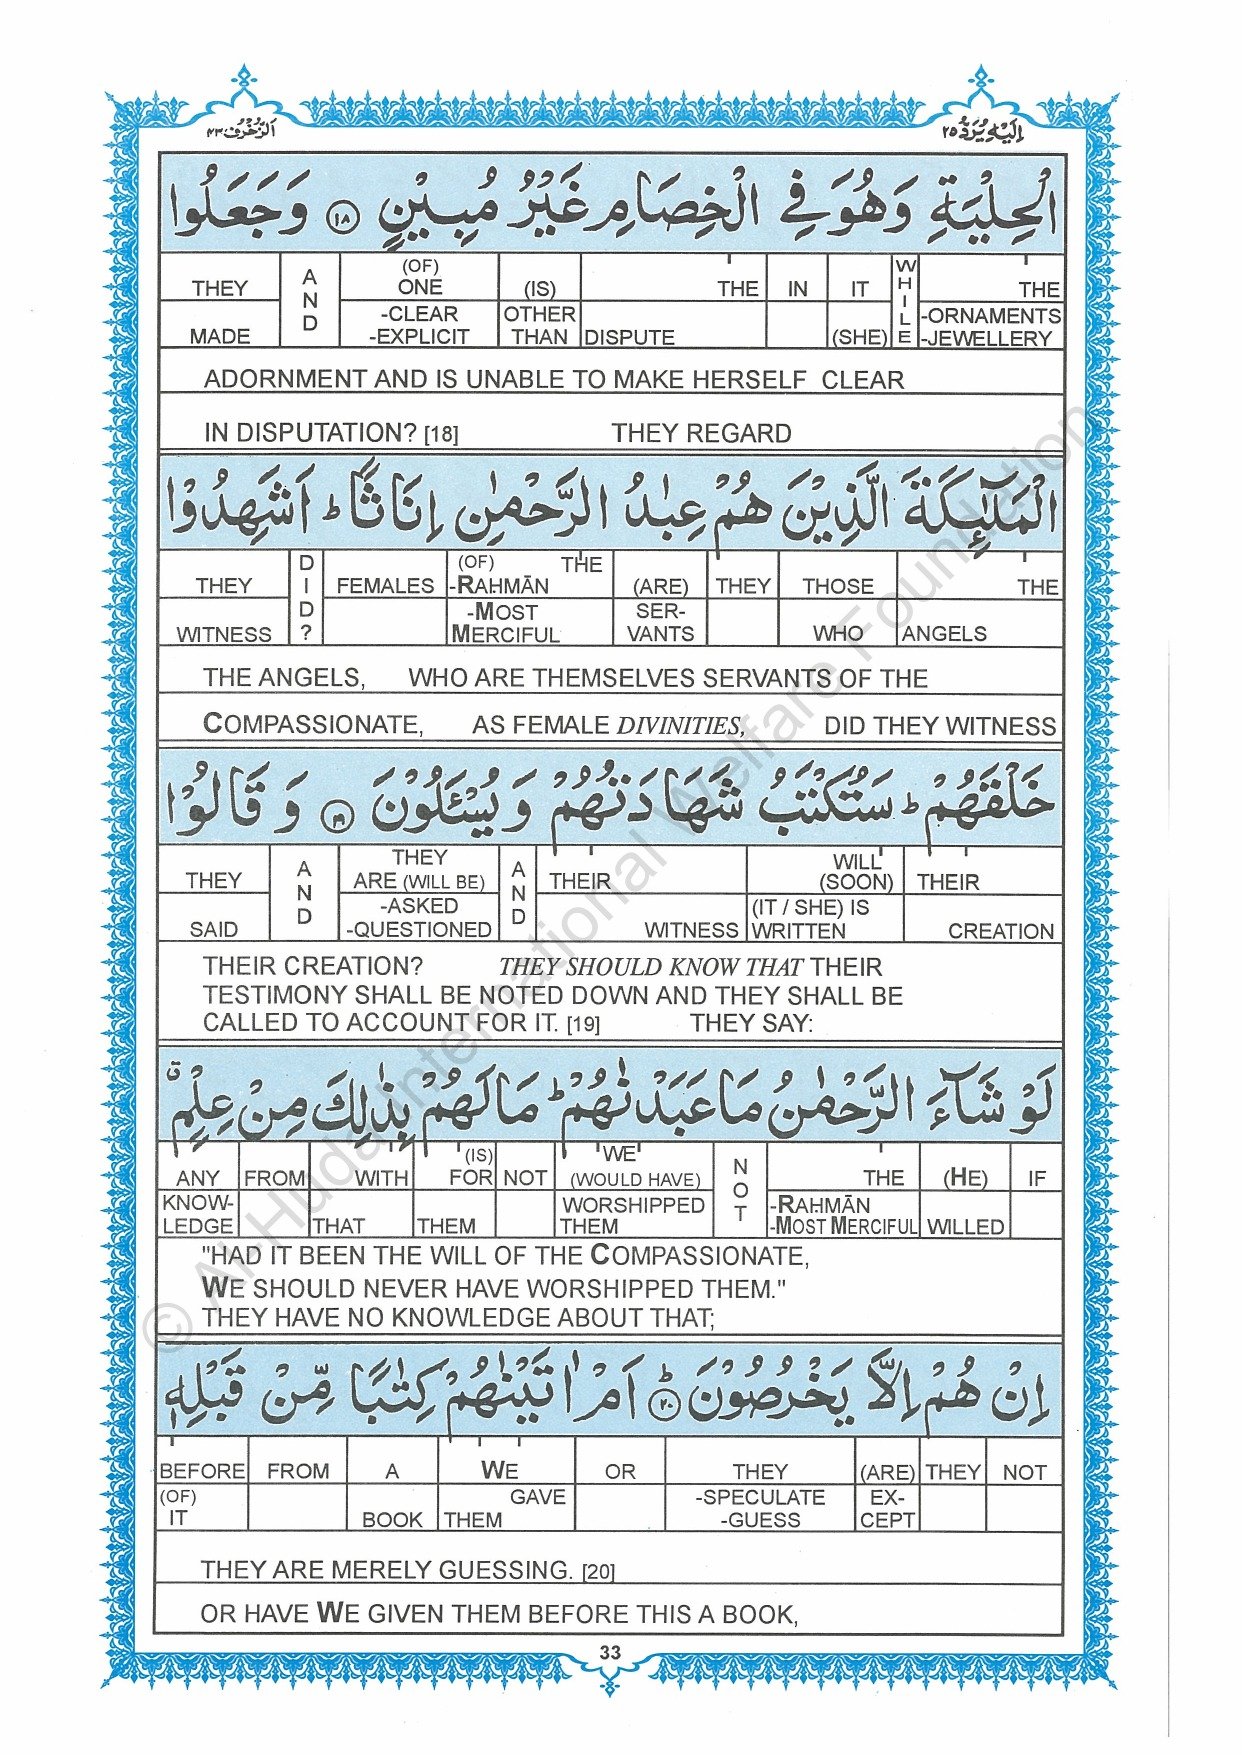 اَلزُّخْرُف ٤٣
اِلَيْهِ يُرَدُّ ٢٥
الْحِلْيَةِ وَهُوَ فِي الْخِصَامِ غَيْرُ مُبِيْنٍ ١٨ وَجَعَلُوا
THEY AND (OF) ONE (IS) THE IN IT WHILE THE
MADE -CLEAR -EXPLICIT OTHER THAN DISPUTE (SHE) -ORNAMENTS -JEWELLERY
ADORNMENT AND IS UNABLE TO MAKE HERSELF CLEAR
IN DISPUTATION? [18] THEY REGARD
الْمَلٰٓئِكَةَ الَّذِيْنَ هُمْ عِبٰدُ الرَّحْمٰنِ اِنَاثًا ؕ اَشَهِدُوْا
THEY DID? FEMALES (OF) THE -RAHMĀN (ARE) THEY THOSE THE
WITNESS -MOST MERCIFUL SER- VANTS WHO ANGELS
THE ANGELS, WHO ARE THEMSELVES SERVANTS OF THE
COMPASSIONATE, AS FEMALE DIVINITIES, DID THEY WITNESS
خَلْقَهُمْ ؕ سَتُكْتَبُ شَهَادَتُهُمْ وَيُسْـَٔلُوْنَ ١٩ وَقَالُوْا
THEY AND THEY ARE (WILL BE) AND THEIR WILL (SOON) THEIR
SAID -ASKED -QUESTIONED WITNESS (IT / SHE) IS WRITTEN CREATION
THEIR CREATION? THEY SHOULD KNOW THAT THEIR
TESTIMONY SHALL BE NOTED DOWN AND THEY SHALL BE
CALLED TO ACCOUNT FOR IT. [19] THEY SAY:
لَوْ شَآءَ الرَّحْمٰنُ مَا عَبَدْنٰهُمْ ؕ مَا لَهُمْ بِذٰلِكَ مِنْ عِلْمٍ ۗ
ANY FROM WITH (IS) FOR NOT WE (WOULD HAVE) NOT THE (HE) IF
KNOW- LEDGE THAT THEM WORSHIPPED THEM -RAHMĀN -MOST MERCIFUL WILLED
"HAD IT BEEN THE WILL OF THE COMPASSIONATE,
WE SHOULD NEVER HAVE WORSHIPPED THEM."
THEY HAVE NO KNOWLEDGE ABOUT THAT;
اِنْ هُمْ اِلَّا يَخْرُصُوْنَ ؕ ٢٠ اَمْ اٰتَيْنٰهُمْ كِتٰبًا مِّنْ قَبْلِهٖ
BEFORE FROM A WE OR THEY (ARE) THEY NOT
(OF) IT BOOK GAVE THEM -SPECULATE -GUESS EX- CEPT
THEY ARE MERELY GUESSING. [20]
OR HAVE WE GIVEN THEM BEFORE THIS A BOOK,
33
© Al-Huda International Welfare Foundation